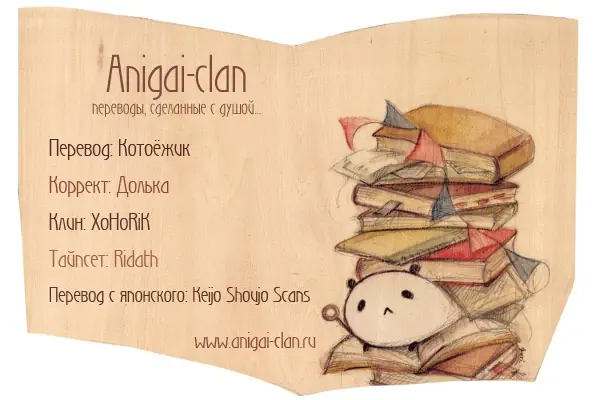 Anigai-clan
переводы, сделанные с душой...
Перевод: Котоёжик
Коррект: Долька
Клин: XoHoRiK
Тайпсет: Ridath
Перевод с японского: Keijo Shoujo Scans
www.anigai-clan.ru